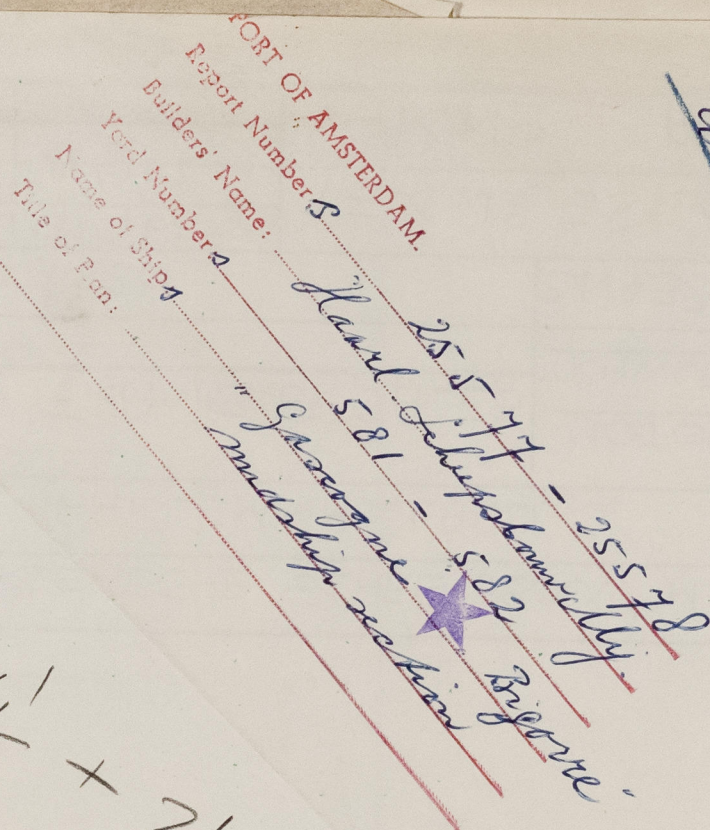 PORT OF AMSTERDAM.
Report Numbers 25577 - 25578
Builders' Name: Haarl Scheepsbouw Mij.
Yard Numbers 581 - 582
Name of Ships "Gascogne Bigorre"
Title of Plan: midship section